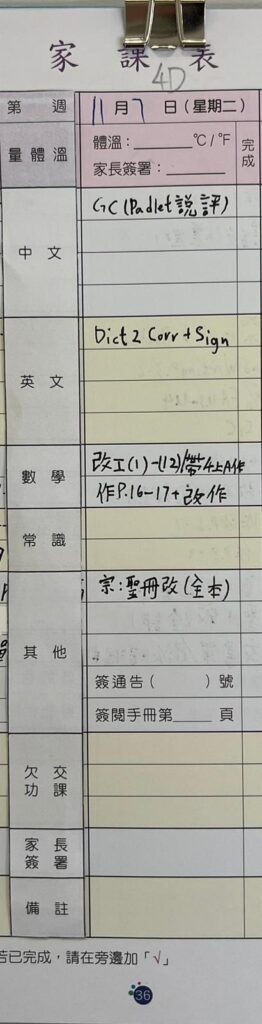 家課表
4D
第 週 11月7日(星期二)
量體溫 體溫：______°C/°F 完成
家長簽署：______
中文 GC (Padlet說評)
英文 Dict 2 Corr + Sign
數學 改工(1)-(12)/帶4上A作
作P.16-17+改作
常識
其他 宗:聖冊改(全本)
簽通告( )號
簽閱手冊第____頁
欠交功課
家長簽署
備註
若已完成，請在旁邊加「√」
36